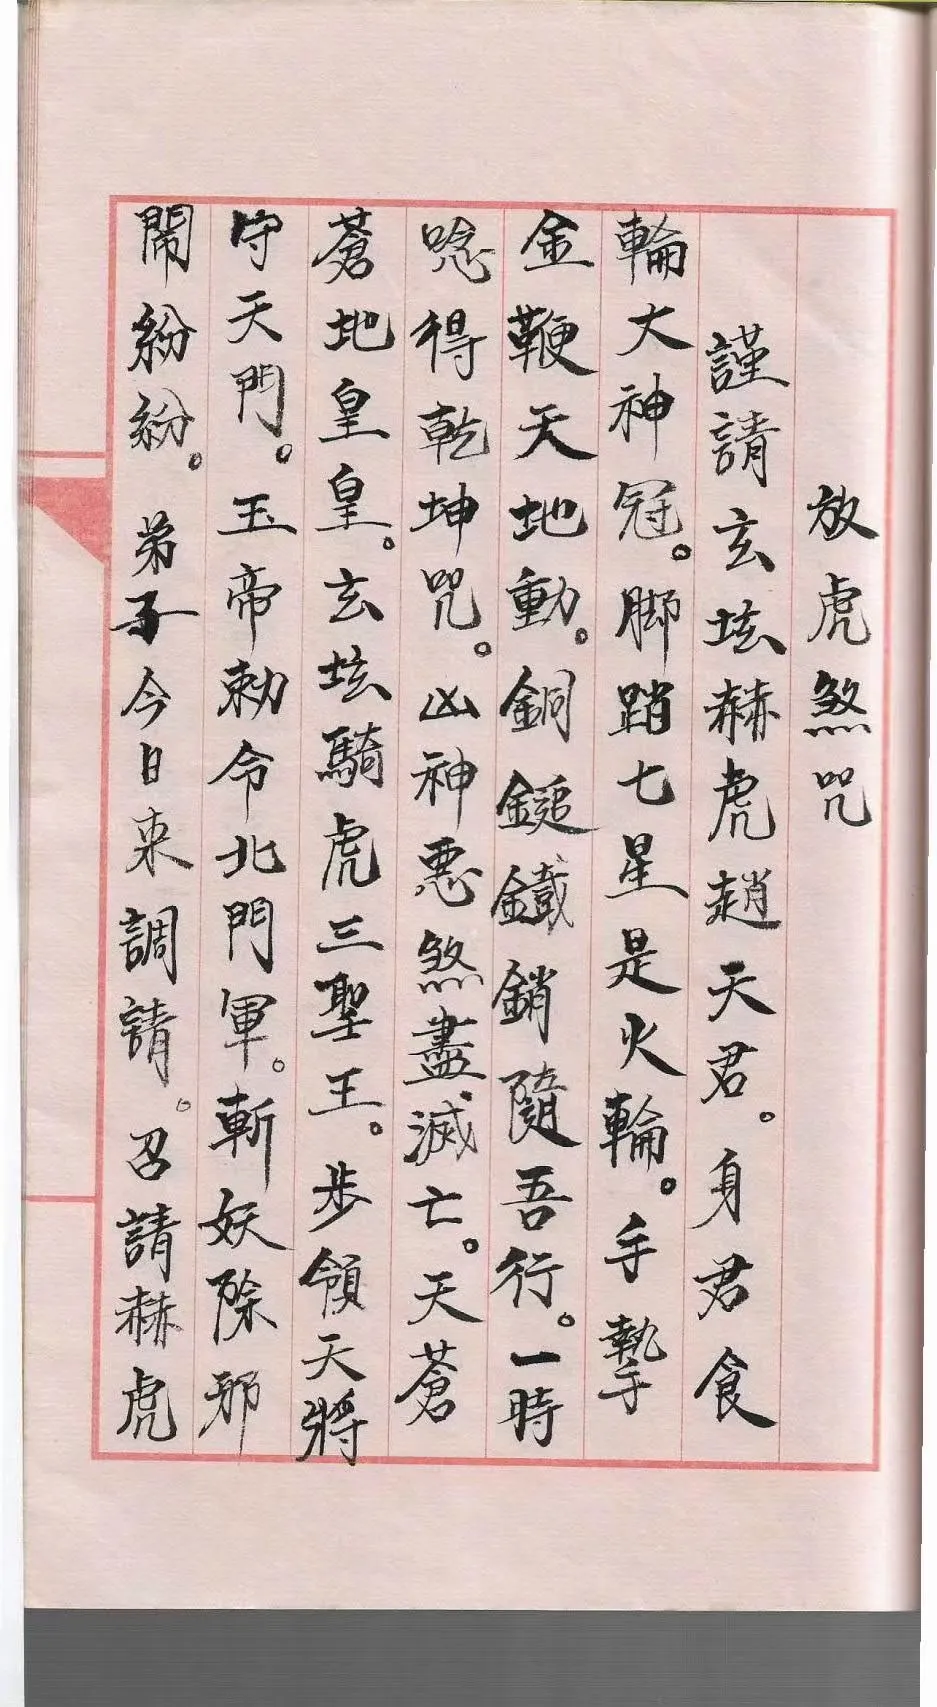 放虎煞咒
謹請玄坛赫虎趙天君。身君食
輪大神冠。脚踏七星是火輪。手執
金鞭天地動。銅鎚鐵銷隨吾行。一時
唸得乾坤咒。凶神惡煞盡滅亡。天蒼
蒼地皇皇。玄坛騎虎三聖王。步領天將
守天門。玉帝勅令北門軍。斬妖除邪
鬧紛紛。弟子今日来調請。召請赫虎